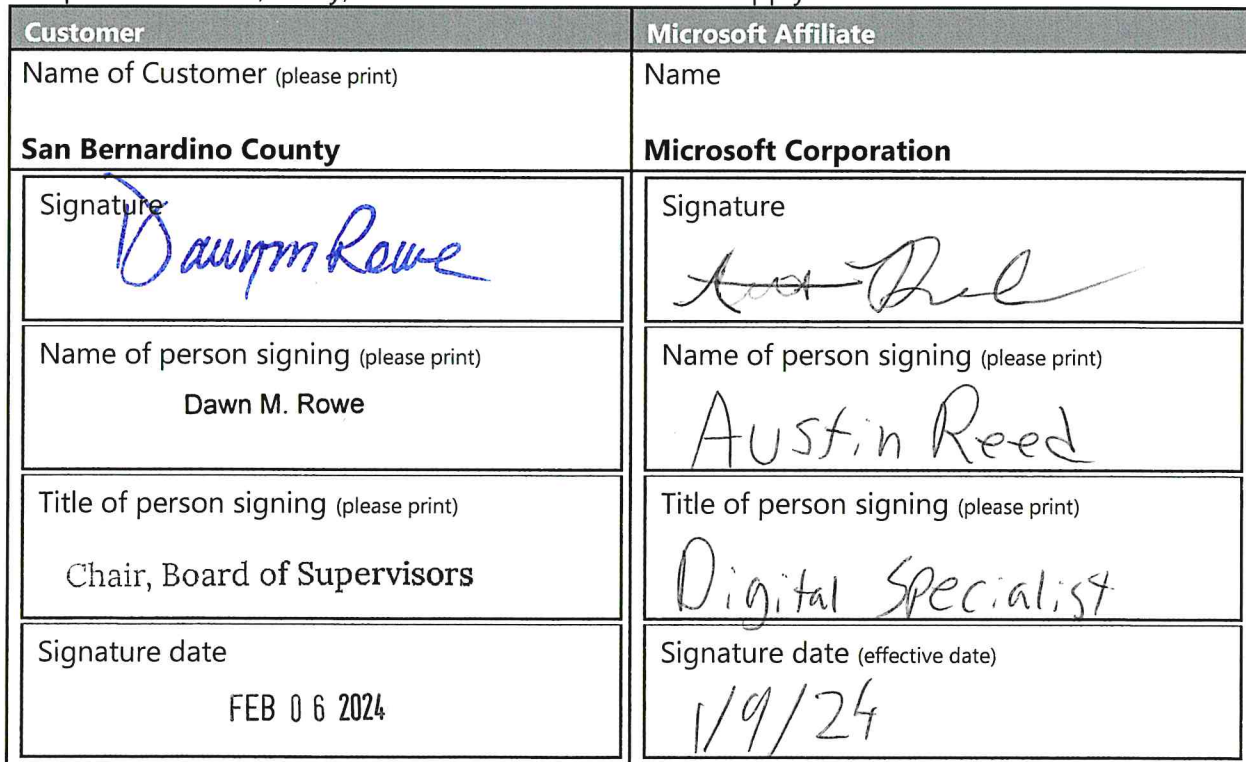 Customer
Microsoft Affiliate
Name of Customer (please print)
San Bernardino County
Name
Microsoft Corporation
Signature
Dawn M Rowe
Signature
Name of person signing (please print)
Dawn M. Rowe
Name of person signing (please print)
Austin Reed
Title of person signing (please print)
Chair, Board of Supervisors
Title of person signing (please print)
Digital Specialist
Signature date
FEB 06 2024
Signature date (effective date)
1/9/24